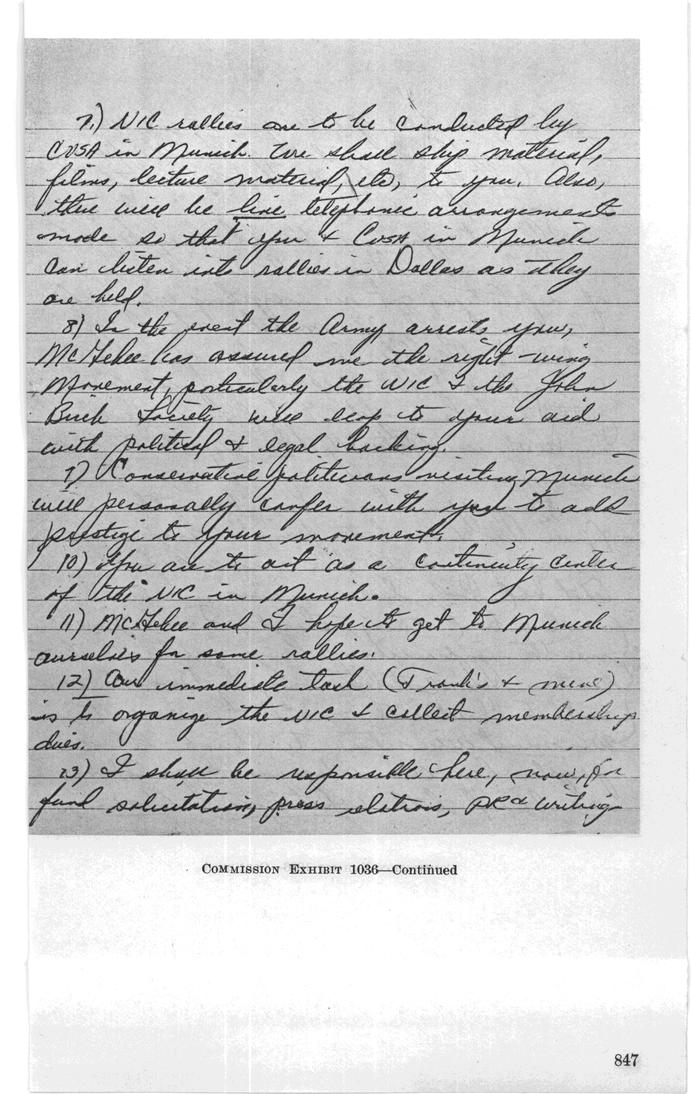 7.) NIC rallies are to be conducted by
CUSA in Munich. We shall ship material,
films, lecture material, etc, to you. Also,
there will be line telephonic arrangements
made so that you & CUSA in Munich
can listen into rallies in Dallas as they
are held.
8) In the event the Army arrests you,
McGehee has assured me the right-wing
Movement, particularly the NIC & the John
Birch Society will leap to your aid
with political & legal backing.
9) Conservative politicians visiting Munich
will personally confer with you to add
prestige to your movement.
10) You are to act as a continuity center
of the NIC in Munich.
11) McGehee and I hope to get to Munich
ourselves for some rallies.
12) Our immediate task (Frank's & mine)
is to organize the NIC & collect membership
dues.
13) I shall be responsible here, now, for
fund solicitation, press relations, PR & writing
COMMISSION EXHIBIT 1036—Continued
847